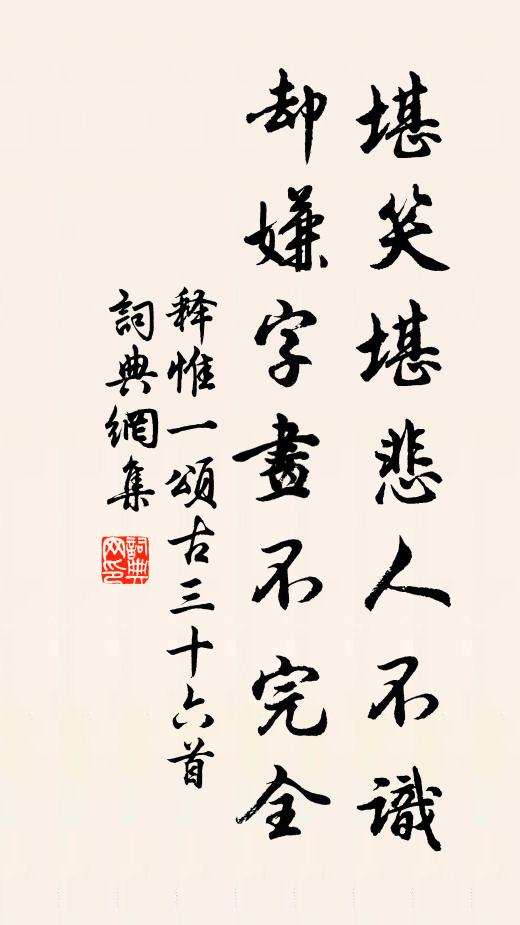 堪笑堪悲人不識
却嫌字畫不完全
释惟一頌古三十六首
詞典網集
詞典网印